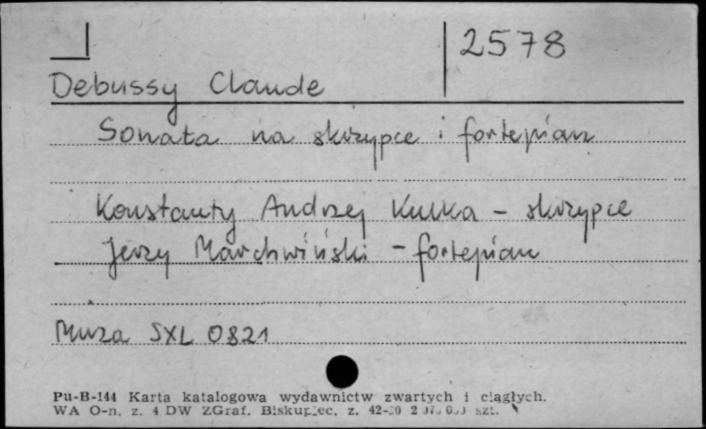 2578
Debussy Claude
Sonata na skrzypce i fortepian
Konstanty Andrzej Kulka - skrzypce
Jerzy Marchwiński - fortepian
Muza SXL 0821
Pu-B-144 Karta katalogowa wydawnictw zwartych i ciągłych.
WA O-n. z. 4 DW ZGraf. Biskupiec, z. szt.